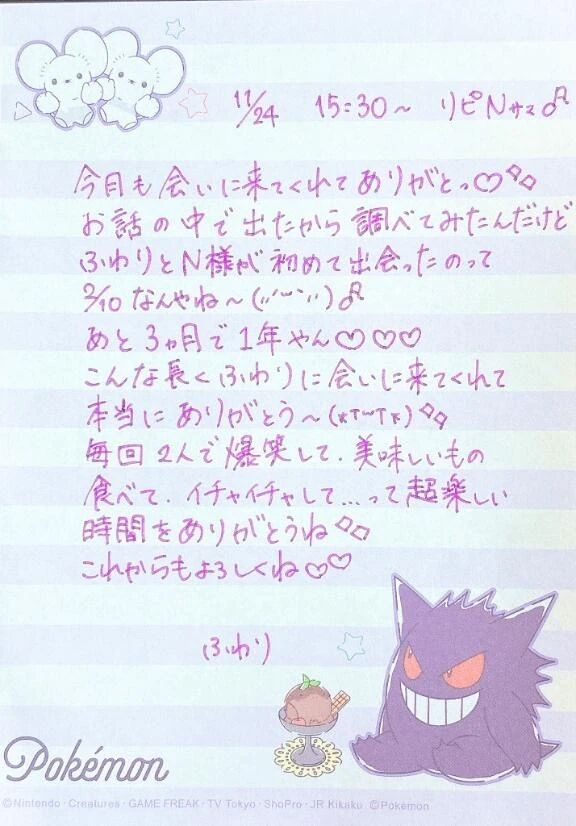 11/24 15:30～ リピNサマ♂
今月も会いに来てくれてありがとっ♡
お話の中で出たから調べてみたんだけど
ふわりとN様が初めて出会ったのって
2/10なんやね～(〃´~`〃)♂
あと3ヵ月で1年やん♡♡♡
こんな長くふわりに会いに来てくれて
本当にありがとう～(*T~T*)
毎回2人で爆笑して、美味しいもの
食べて、イチャイチャして...って超楽しい
時間をありがとうね
これからもよろしくね♡♡
ふわり
Pokémon
©Nintendo・Creatures・GAME FREAK・TV Tokyo・ShoPro・JR Kikaku ©Pokémon